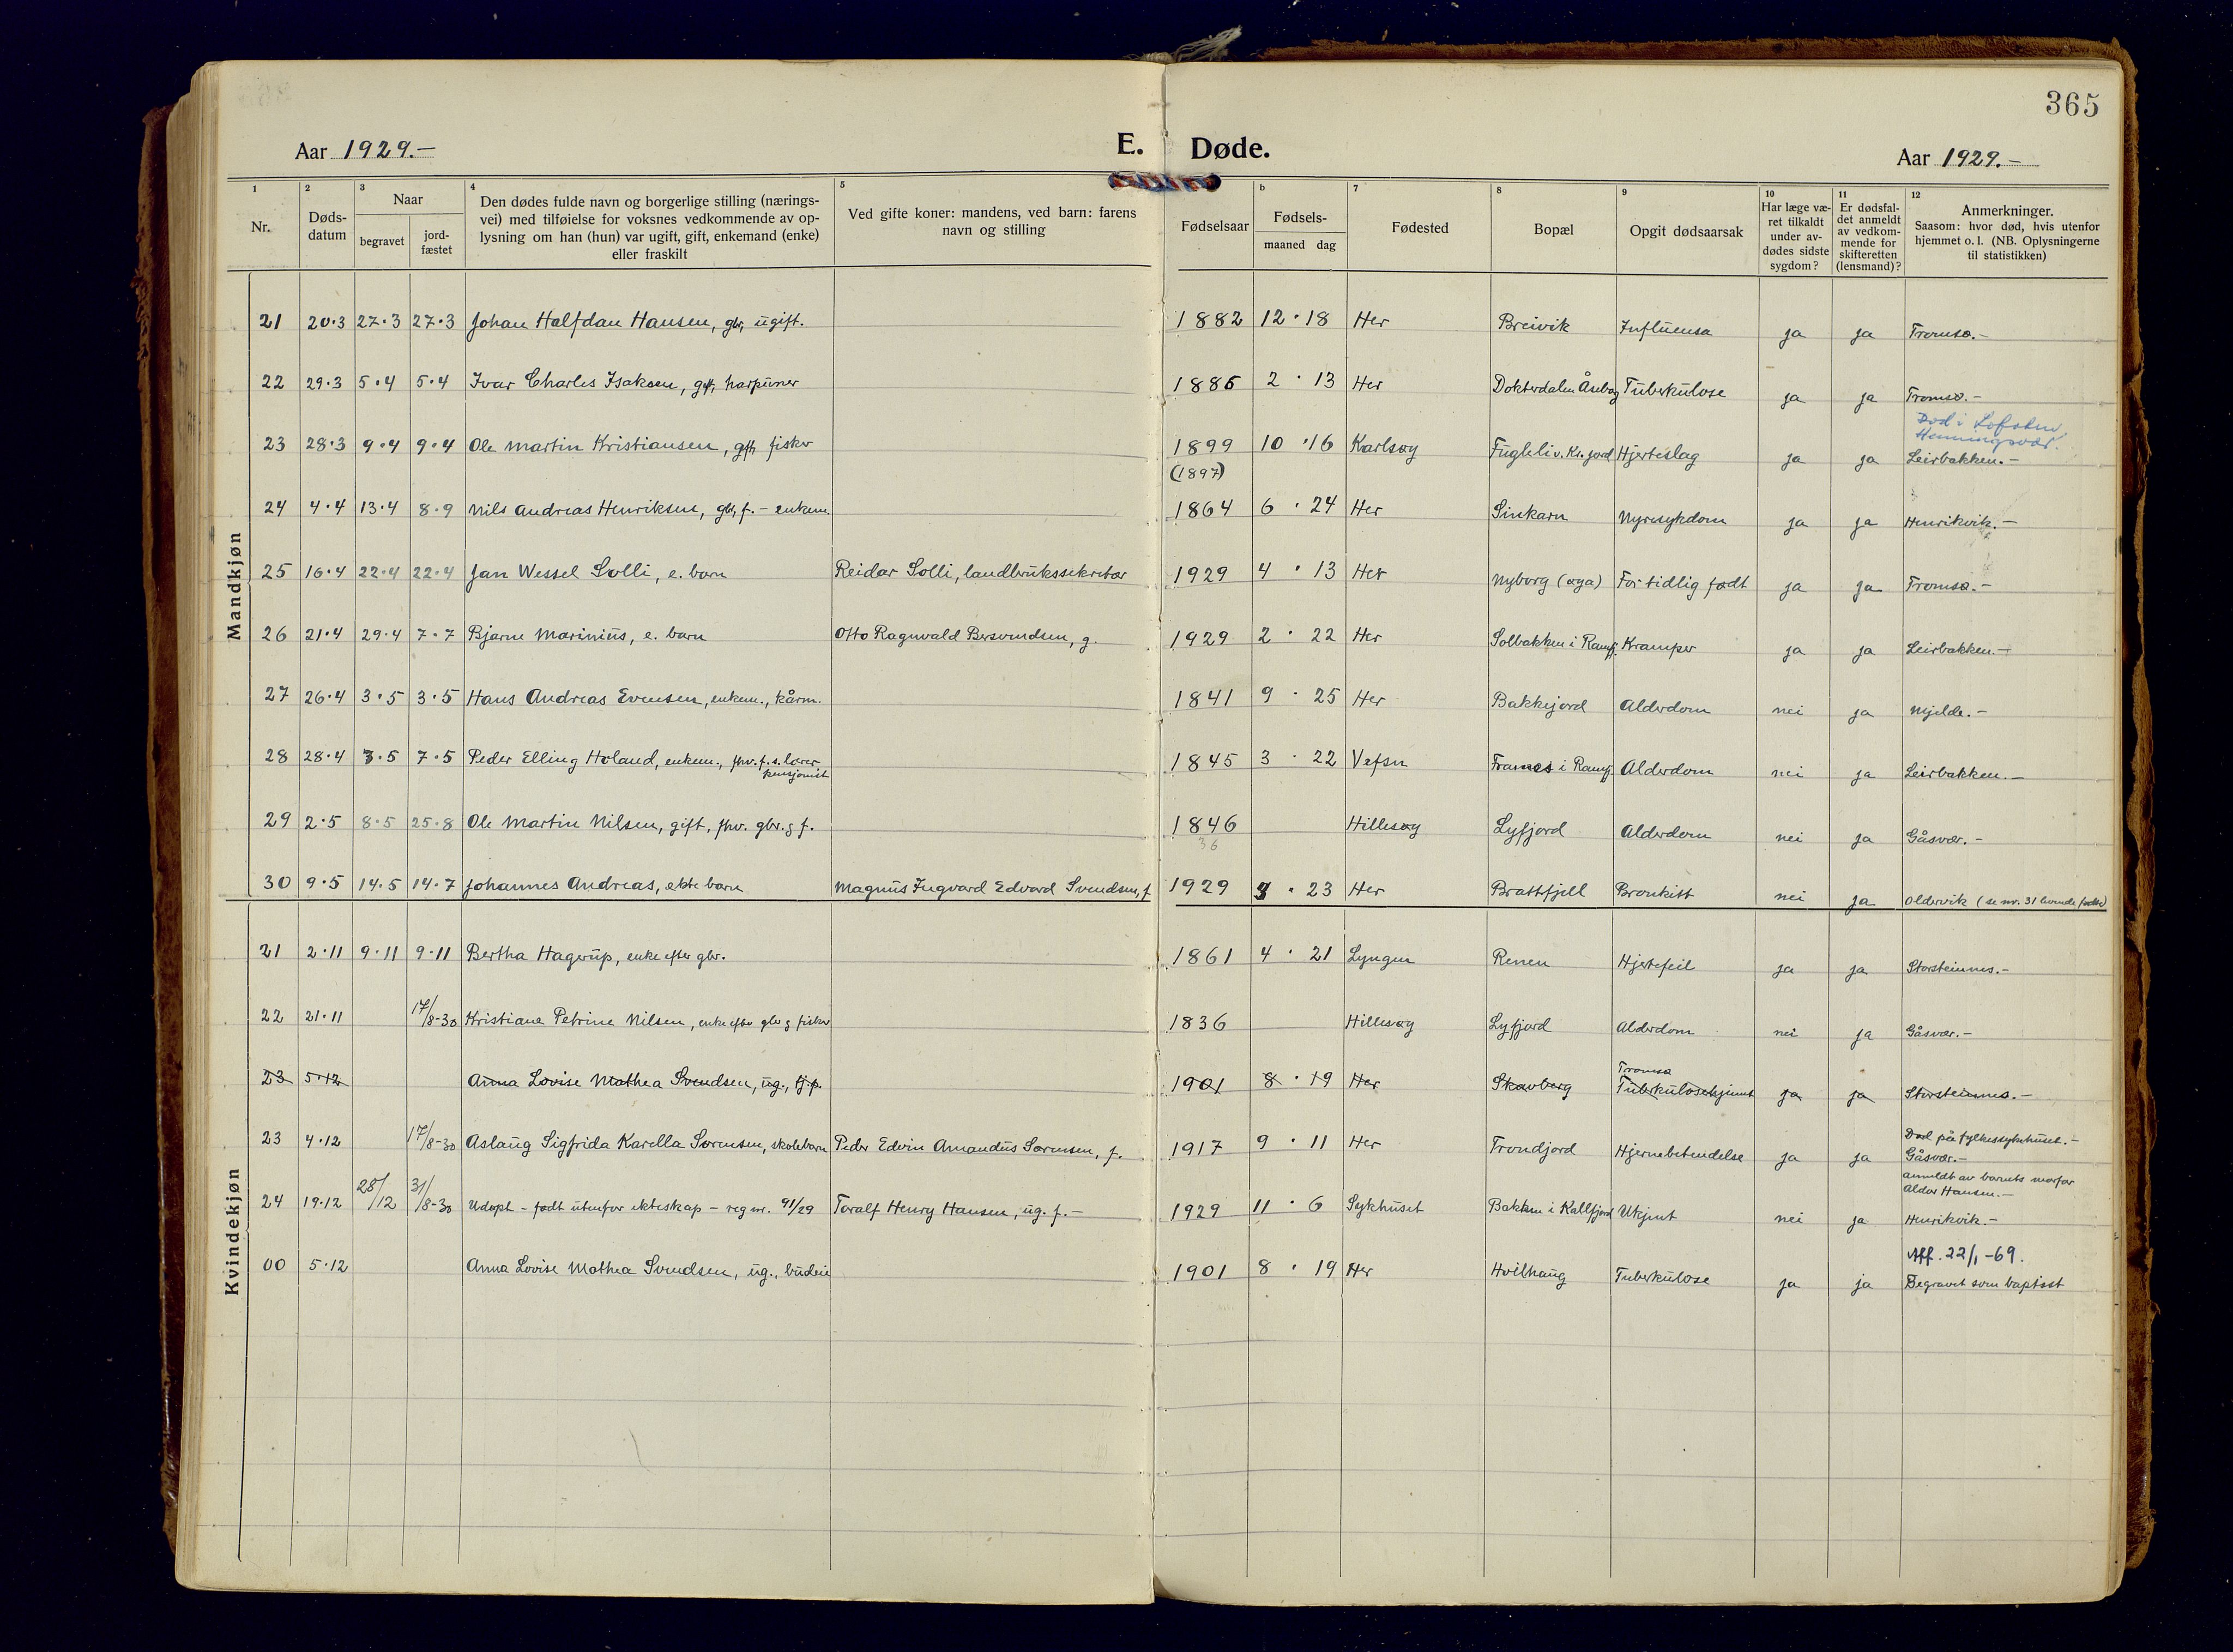 365
Aar 1929.-
E. Døde.
Aar 1929.-
1 Nr.
2 Døds-datum
3 Naar
begravet
jord-fæstet
4 Den dødes fulde navn og borgerlige stilling (nærings-
vei) med tilføielse for voksnes vedkommende av op-
lysning om han (hun) var ugift, gift, enkemand (enke)
eller fraskilt
5 Ved gifte koner: mandens, ved barn: farens
navn og stilling
Fødselsaar
b Fødsels-
maaned dag
7 Fødested
8 Bopæl
9 Opgit dødsaarsak
10 Har læge væ-
ret tilkaldt
under av-
dødes sidste
sygdom?
11 Er dødsfal-
det anmeldt
av vedkom-
mende for
skifteretten
(lensmand)?
12 Anmerkninger.
Saasom: hvor død, hvis utenfor
hjemmet o. l. (NB. Oplysningerne
til statistikken)
Mandkjøn
21 20·3 27·3 27·3 Johan Halfdan Hansen, gbr, ugift. 1882 12·18 Her Breivik Influensa ja ja Tromsø.-
22 29·3 5·4 5·4 Ivar Charles Isaksen, gift, harpuner 1885 2·13 Her Dokterdalen Åsebog Tuberkulose ja ja Tromsø.-
Død i Lofoten,
Henningsvær.
23 28·3 9·4 9·4 Ole Martin Kristiansen, gift, fisker 1899 10·16 Karlsøy Fugleli v. Kr.fjord Hjerteslag ja ja Leirbakken.-
(1897)
24 4·4 13·4 8·9 Nils Andreas Henriksen, gbr, f. - enkem. 1864 6·24 Her Sinkarn Nyresykdom ja ja Henrikvik.-
25 16·4 22·4 22·4 Jan Wessel Solli, e. barn Reidar Solli, landbrukssekretær 1929 4·13 Her Nyborg (øya) For tidlig født ja ja Tromsø.-
26 21·4 29·4 7·7 Bjarne Marinius, e. barn Otto Ragnvald Bersvendsen, g. 1929 2·22 Her Solbakken i Ramfj. Kramper ja ja Leirbakken.-
27 26·4 3·5 3·5 Hans Andreas Evensen, enkem., kårm. 1841 9·25 Her Bakkejord Alderdom nei ja Mjelde.-
28 28·4 3·5 7·5 Peder Elling Holand, enkem., fhv. f.s. lærer 1845 3·22 Vefsn Framnes i Ramfj. Alderdom nei ja Leirbakken.-
pensjonist
29 2·5 8·5 25·8 Ole Martin Nilsen, gift, fhv. gbr. g f. 1846 Hillesøy Lyfjord Alderdom nei ja Gåsvær.-
36
30 9·5 14·5 14·7 Johannes Andreas, ekte barn Magnus Ingvard Edvard Svendsen, f 1929 3·23 Her Brattfjell Bronkitt nei ja Oldervik (se nr. 31 levende fødte)
Kvindekjøn
21 2·11 9·11 9·11 Bertha Hagerup, enke efter gbr. 1861 4·21 Lyngen Renen Hjertefeil ja ja Storsteinnes.-
22 21·11 17/8-30 Kristiane Petrine Nilsen, enke efter gbr g fisker 1836 Hillesøy Lyfjord Alderdom nei ja Gåsvær.-
Tromsø
23 5·12 Anna Lovise Mathea Svendsen, ug., tj.p. 1901 8·19 Her Skavberg Tuberkulosehjemt ja ja Storsteinnes.-
Død på fylkessykehuset.-
23 4·12 17/8-30 Aslaug Sigfrida Karella Sørensen, skolebarn Peder Edvin Amandus Sørensen, f. 1917 9·11 Her Trondjord Hjernebetendelse ja ja Gåsvær.-
anmeldt av barnets morfar
Aldor Hansen.-
24 19·12 28/12 31/8-30 Udøpt - født utenfor ekteskap - reg nr. 91/29 Toralf Henry Hansen, ug. f.- 1929 11·6 Sykhuset Bakken i Kallfjord Ukjent nei ja Henrikvik.-
Aff. 22/1-69.
00 5·12 Anna Lovise Mathea Svendsen, ug., budeie 1901 8·19 Her Hvilhaug Tuberkulose ja ja Begravet som baptist